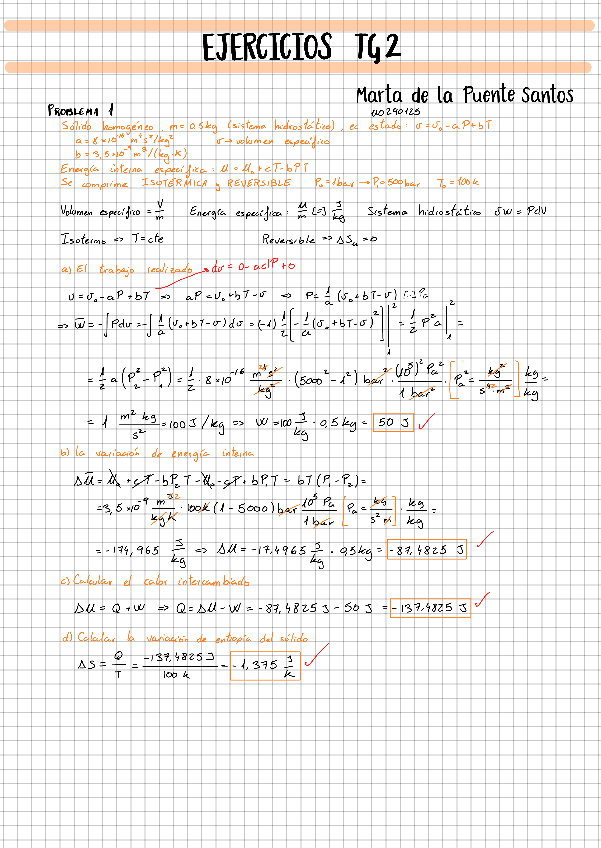 EJERCICIOS TG2
Marta de la Puente Santos
UO290125
PROBLEMA 1
Sólido homogéneo, m = 0,5 kg (sistema hidrostático), ec estado: v = v₀ - aP + bT
a = 8×10⁻¹⁶ m⁴s²/kg²
v → volumen específico
b = 3,5×10⁻⁹ m³/(kg·K)
Energía interna específica: u = u₀ + cT - bPT
Se comprime ISOTÉRMICA y REVERSIBLE P₀ = 1bar → P = 500bar T₀ = 100K
Volumen específico = V/m Energía específica: U/m [=] J/kg Sistema hidrostático δW = PdV
Isotermo => T = cte Reversible => ΔSᵤ = 0
a) El trabajo realizado dv = 0 - adP + 0
v = v₀ - aP + bT => aP = v₀ + bT - v => P = 1/a (v₀ + bT - v) [=] Pa
=> W = -∫Pdv = -∫ 1/a (v₀ + bT - v) dv = (-1) 1/2 [-1/a (v₀ + bT - v)²]|₁² = 1/2 P² a|₁² =
= 1/2 a (P₂² - P₁²) = 1/2 · 8×10⁻¹⁶ m⁴s²/kg² · (5000² - 1²) bar² · (10⁵)² Pa²/1 bar² · [Pa² = kg²/s⁴·m²] kg/kg =
= 1 m² kg/s² = 100 J/kg => W = 100 J/kg · 0,5 kg = 50 J
b) la variación de energía interna
Δu = u₀ + cT - bP₂T - u₀ - cT + bP₁T = bT (P₁ - P₂) =
= 3,5×10⁻⁹ m³/kg K · 100K (1 - 5000) bar 10⁵ Pa/1 bar [Pa = kg/s² m] · kg/kg =
= -174,965 J/kg => ΔU = -17,4965 J/kg · 0,5 kg = -87,4825 J
c) Calcular el calor intercambiado
ΔU = Q + W => Q = ΔU - W = -87,4825 J - 50 J = -137,4825 J
d) Calcular la variación de entropía del sólido
ΔS = Q/T = -137,4825 J/100 K = -1,375 J/K